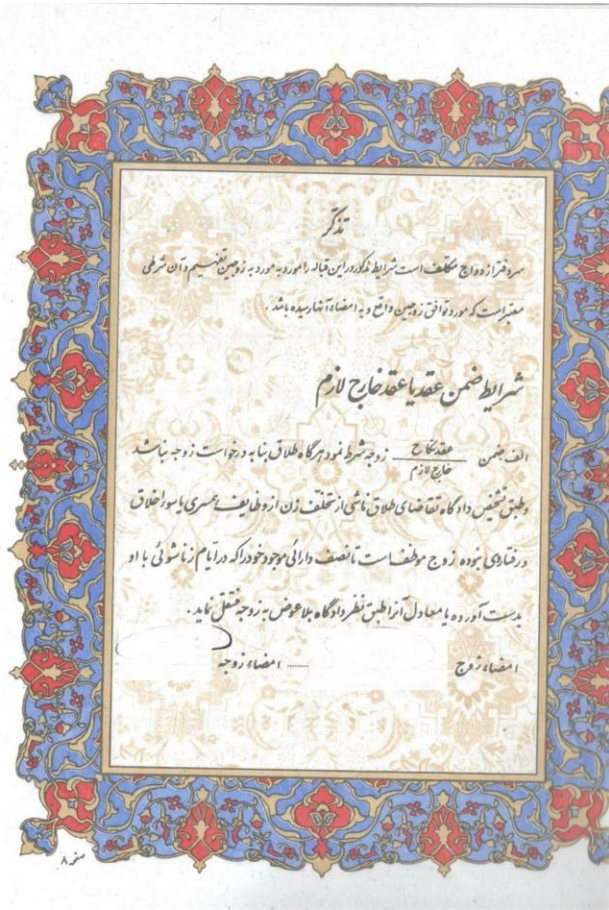 تذکر
سردفتر ازدواج مکلف است شرایط مذکور در این قباله را مورد به مورد به زوجین تفهیم و آن شرطی
معتبر است که مورد توافق زوجین واقع و به امضاء آنها رسیده باشد .
شرایط ضمن عقد یا عقد خارج لازم
الف ضمن عقد نکاح زوجه شرط نمود هرگاه طلاق بنا به درخواست زوجه نباشد
خارج لازم
و طبق تشخیص دادگاه تقاضای طلاق ناشی از تخلف زن از وظایف همسری یا سوء اخلاق
و رفتار وی نبوده زوج موظف است تا نصف دارائی موجود خود را که در ایام زناشوئی با او
بدست آورده یا معادل آنرا طبق نظر دادگاه بلاعوض به زوجه منتقل نماید .
امضاء زوج ...... امضاء زوجه
صفحه ۸